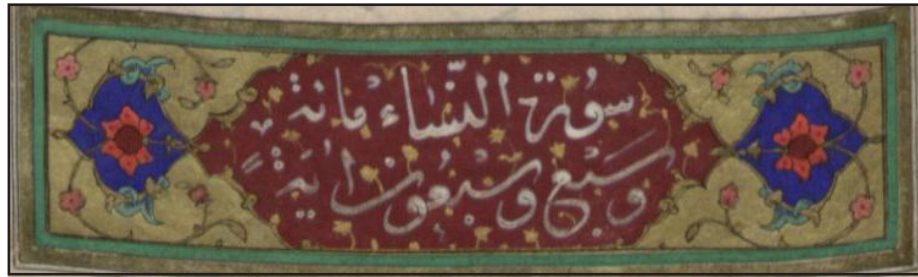 سورة النساء مائة
وسبع وسبعون اية